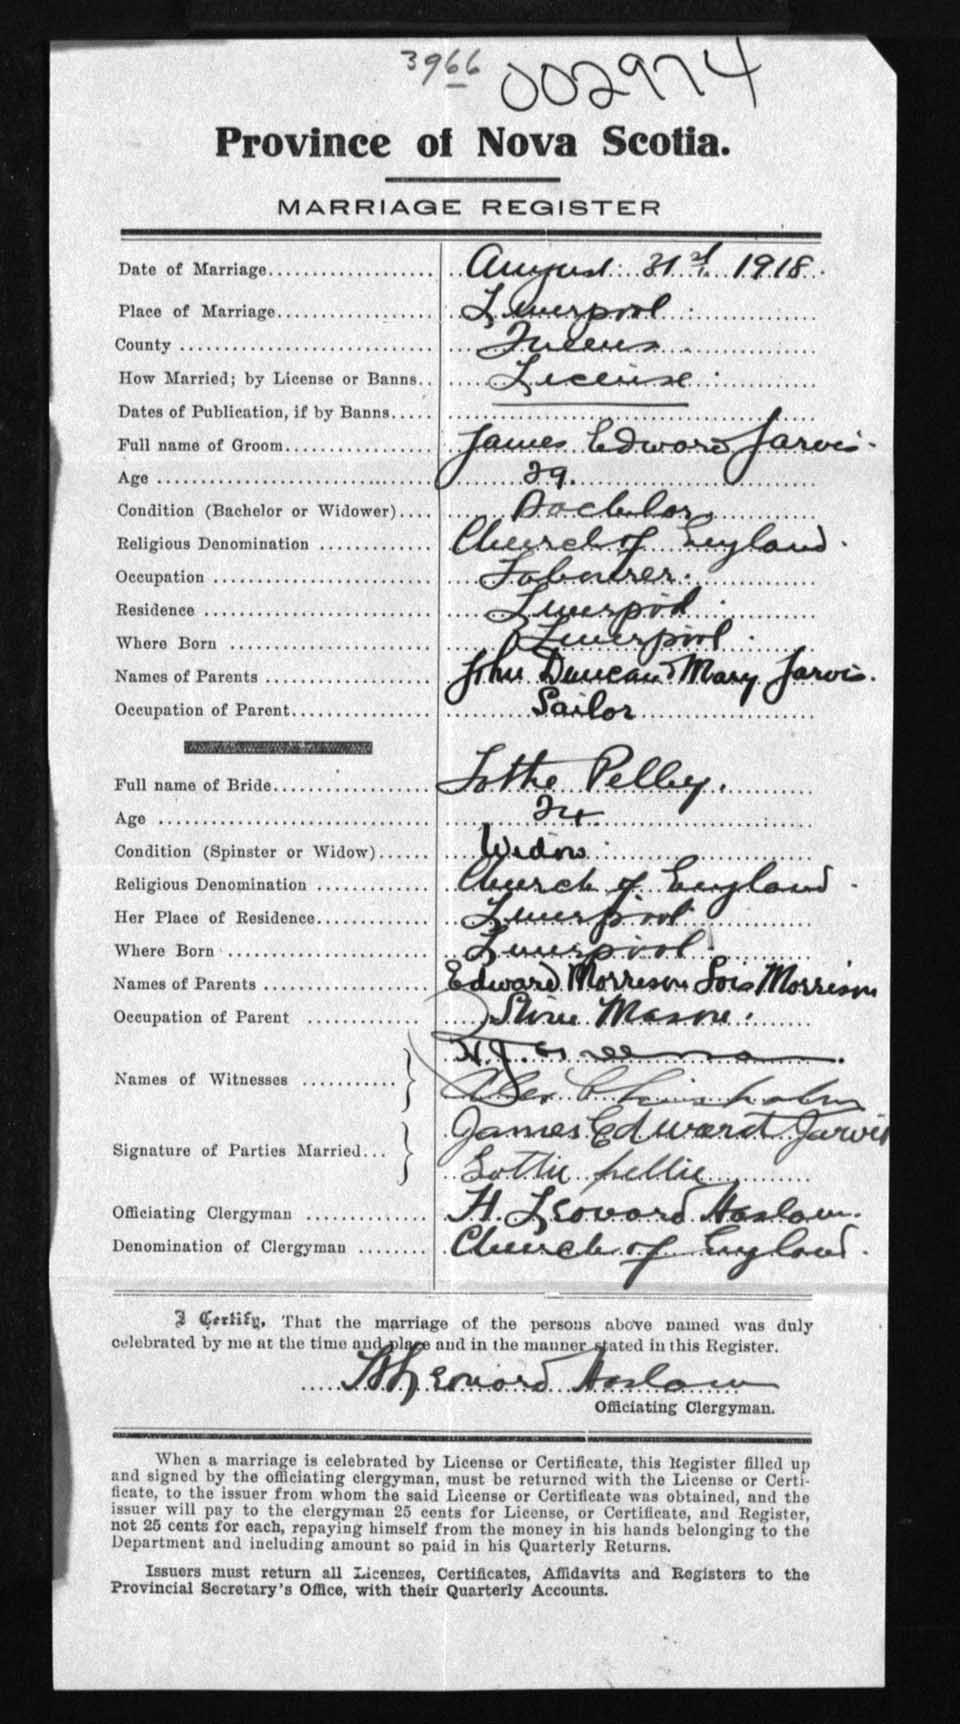 3966 002974
Province of Nova Scotia.
MARRIAGE REGISTER
Date of Marriage August 31st 1918.
Place of Marriage Liverpool
County Queens
How Married; by License or Banns License
Dates of Publication, if by Banns
Full name of Groom James Edward Jarvis.
Age 29.
Condition (Bachelor or Widower) Bachelor
Religious Denomination Church of England.
Occupation Labourer.
Residence Liverpool
Where Born Liverpool
Names of Parents John Duncan Mary Jarvis.
Occupation of Parent Sailor
Full name of Bride Pelley.
Age 24
Condition (Spinster or Widow) Widow
Religious Denomination Church of England
Her Place of Residence Liverpool
Where Born Liverpool
Names of Parents Edward Morrison Lois Morrison
Occupation of Parent Stone Mason.
Names of Witnesses
Alex Chisholm
Signature of Parties Married James Edward Jarvis
Lottie pellie
Officiating Clergyman H. Leonard Haslam.
Denomination of Clergyman Church of England.
I Certify, That the marriage of the persons above named was duly
celebrated by me at the time and place and in the manner stated in this Register.
H Leonard Haslam
Officiating Clergyman.
When a marriage is celebrated by License or Certificate, this Register filled up
and signed by the officiating clergyman, must be returned with the License or Certi-
ficate, to the issuer from whom the said License or Certificate was obtained, and the
issuer will pay to the clergyman 25 cents for License, or Certificate, and Register,
not 25 cents for each, repaying himself from the money in his hands belonging to the
Department and including amount so paid in his Quarterly Returns.
Issuers must return all Licenses, Certificates, Affidavits and Registers to the
Provincial Secretary's Office, with their Quarterly Accounts.